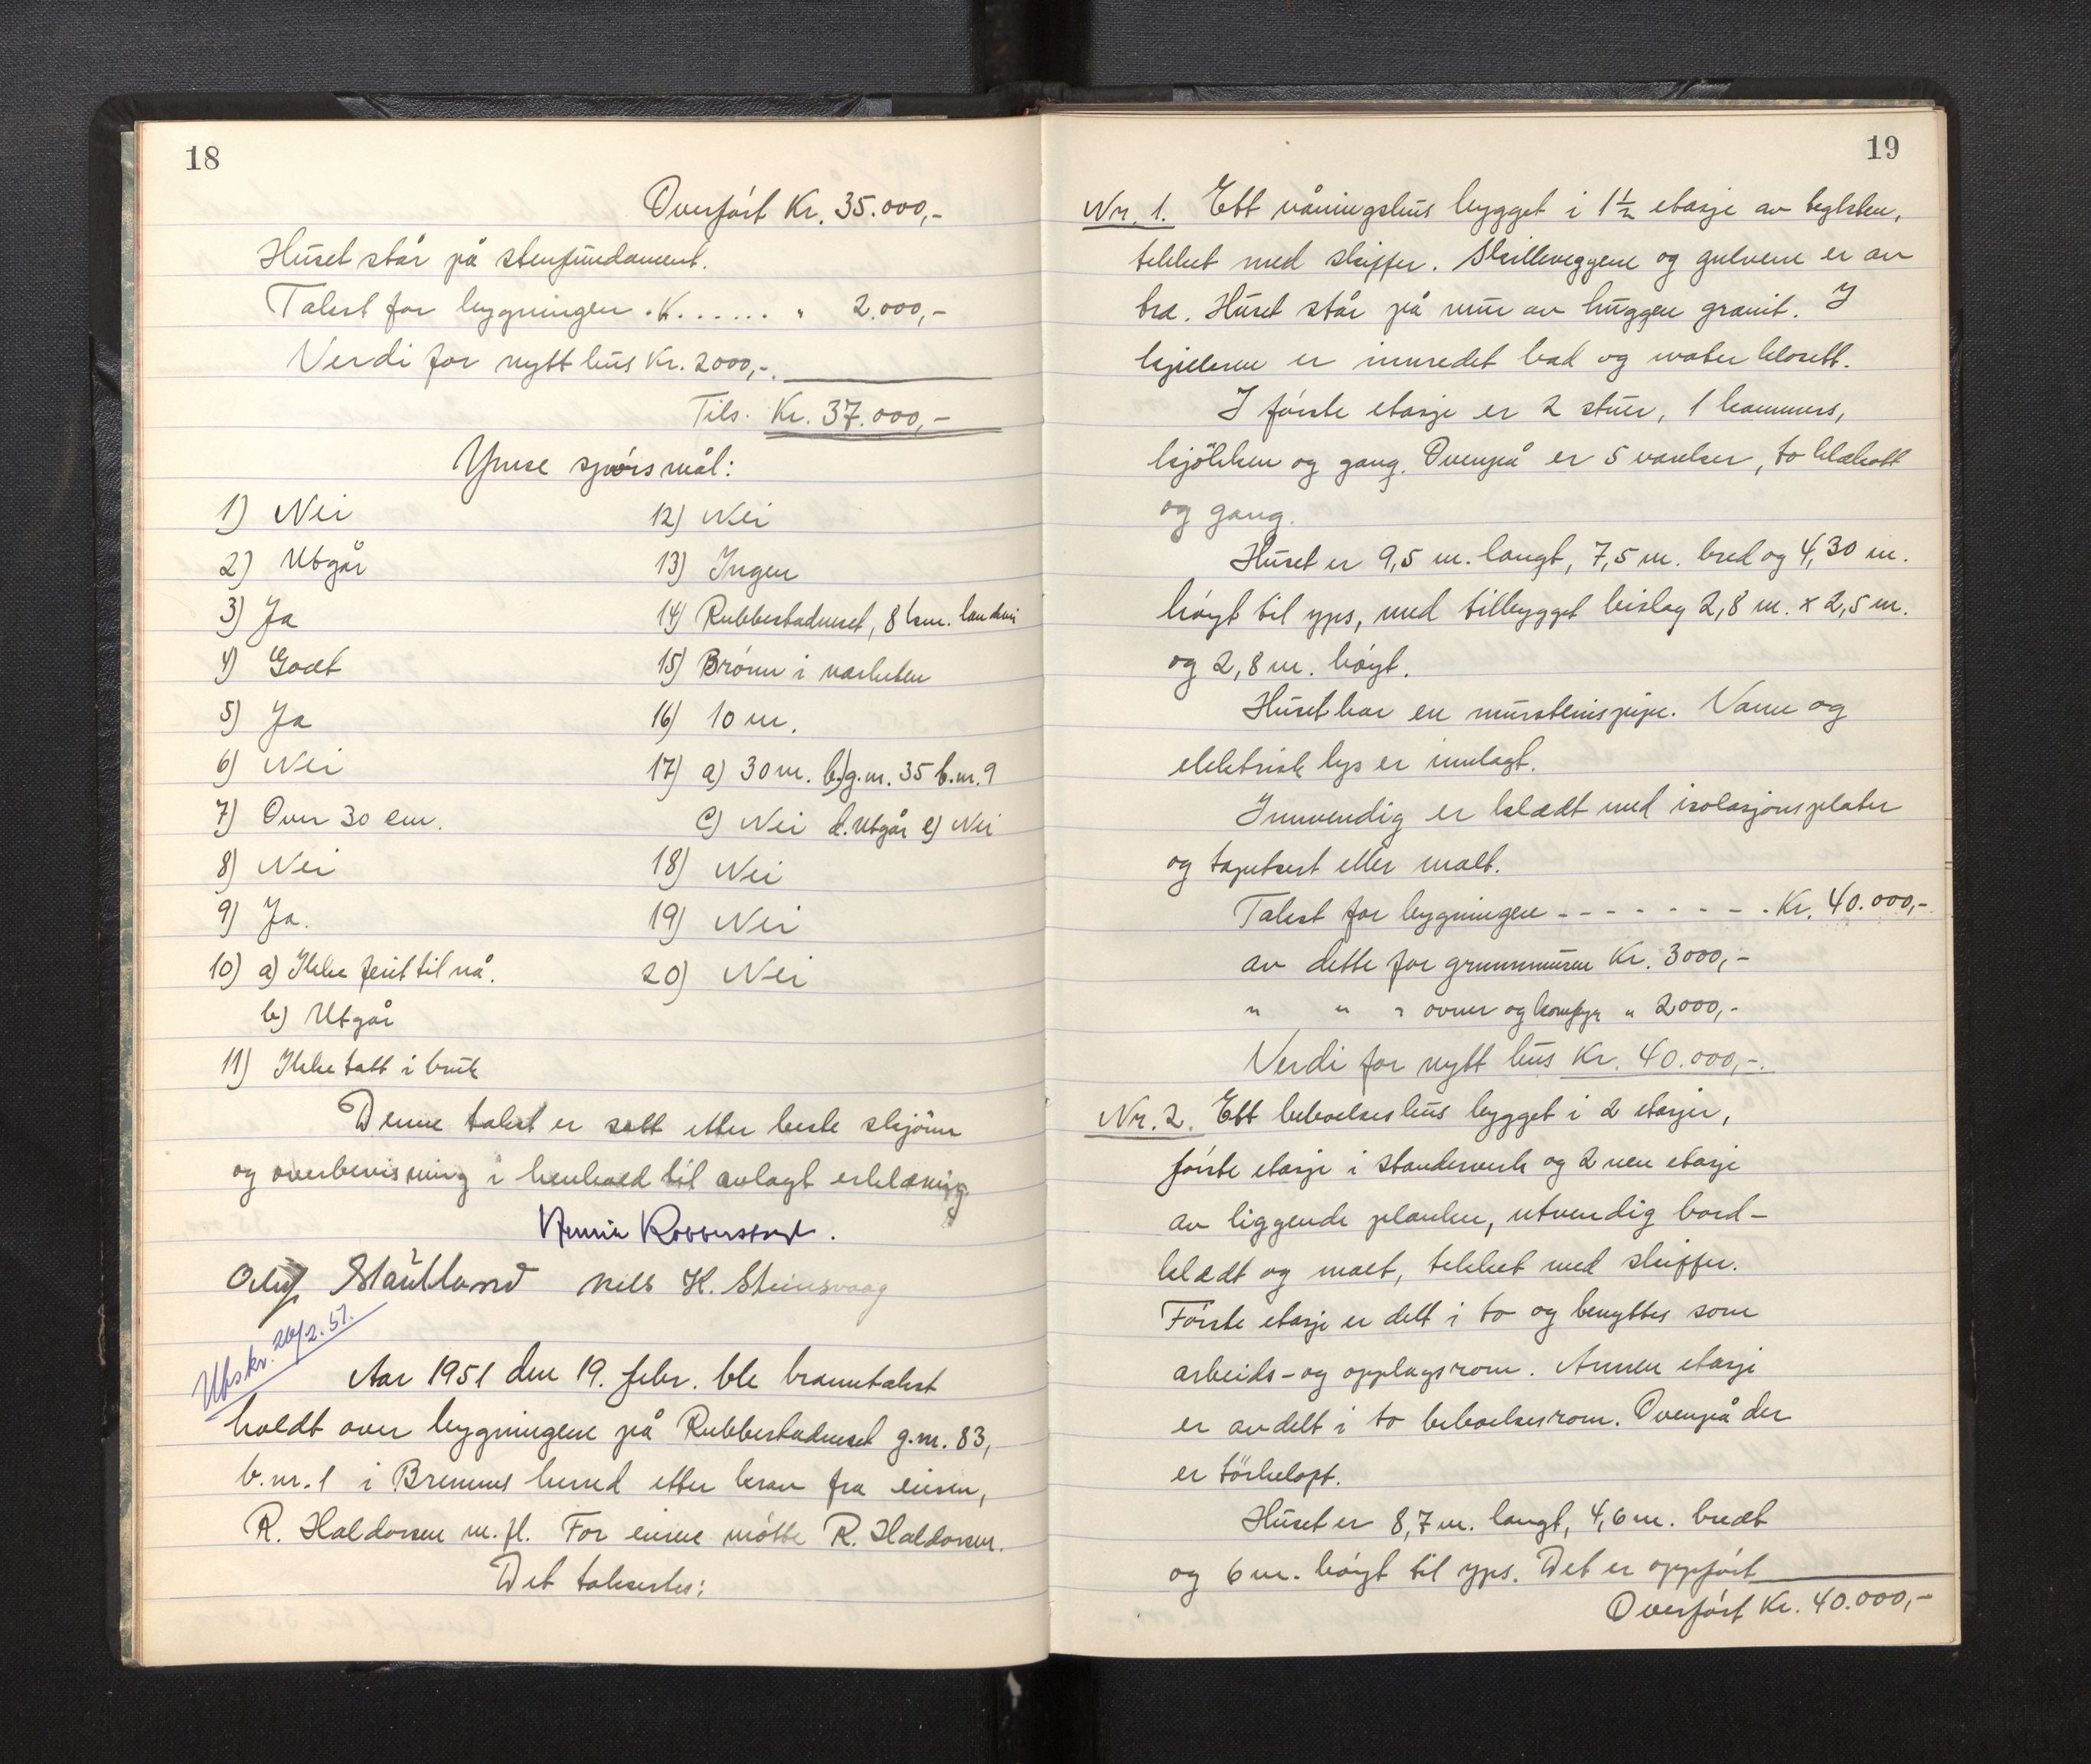 18
Overført Kr. 35.000,-
Huset står på stenfundament.
Takst for bygningen . K...... " 2.000,-
Verdi for nytt hus Kr. 2000,-.
Tils. Kr. 37.000,-
Ymse spørsmål:
1) Nei
2) Utgår
3) Ja
4) Godt
5) Ja
6) Nei
7) Over 30 cm.
8) Nei
9) Ja.
10) a) Ikke feiet til nå.
b) Utgår
11) Ikke tatt i bruk
12) Nei
13) Ingen
14) Rubbestadneset, 8 km.
15) Brønn i nærheten
16) 10 m.
17) a) 30 m. b.) g.nr. 35 b.nr. 9
c) Nei d. Utgår e) Nei
18) Nei
19) Nei
20) Nei
Denne takst er satt etter beste skjønn
og overbevisning i henhold til avlagt erklæring.
Henrik Robberstad.
Oluf Stautland Nils H. Steinsvaag
Utskr. 26/2. 51.
Aar 1951 den 19. febr. ble branntakst
holdt over bygningene på Rubbestadneset g.nr. 83,
b.nr. 1 i Bremnes herred etter krav fra eieren,
R. Haldorsen m. fl. For eierne møtte R. Haldorsen.
Det takseres:
19
Nr. 1. Ett våningshus bygget i 1½ etasje av teglsten,
tekket med skiffer. Skilleveggene og gulvene er av
tre. Huset står på mur av huggen granit. I
kjelleren er innredet bad og water klosett.
I første etasje er 2 stuer, 1 kammers,
kjökken og gang. Ovenpå er 5 værelser, to klekott
og gang.
Huset er 9,5 m. langt, 7,5 m. bred og 4,30 m.
høyt til gps, med tilbygget bislag 2,8 m. x 2,5 m.
og 2,8 m. høyt.
Huset har en murstenspipe. Vann og
elektrisk lys er innlagt.
Innvendig er kledt med isolasjonsplater
og tapetsert eller malt.
Takst for bygningen - - - - - - - - . Kr. 40.000,-
av dette for grunnmuren Kr. 3000,-
" " " ovner og komfyr " 2000,-
Verdi for nytt hus Kr. 40.000,-.
Nr. 2. Ett beboelseshus bygget i 2 etasjer,
første etasje i standerverk og 2nen etasje
av liggende planker, utvendig bord-
kledt og malt, tekket med skiffer.
Første etasje er delt i to og benyttes som
arbeids- og opplagsrom. Annen etasje
er avdelt i to beboelsesrom. Ovenpå der
er törkeloft.
Huset er 8,7 m. langt, 4,6 m. bredt
og 6 m. høyt til gps. Det er oppført
Overført Kr. 40.000,-